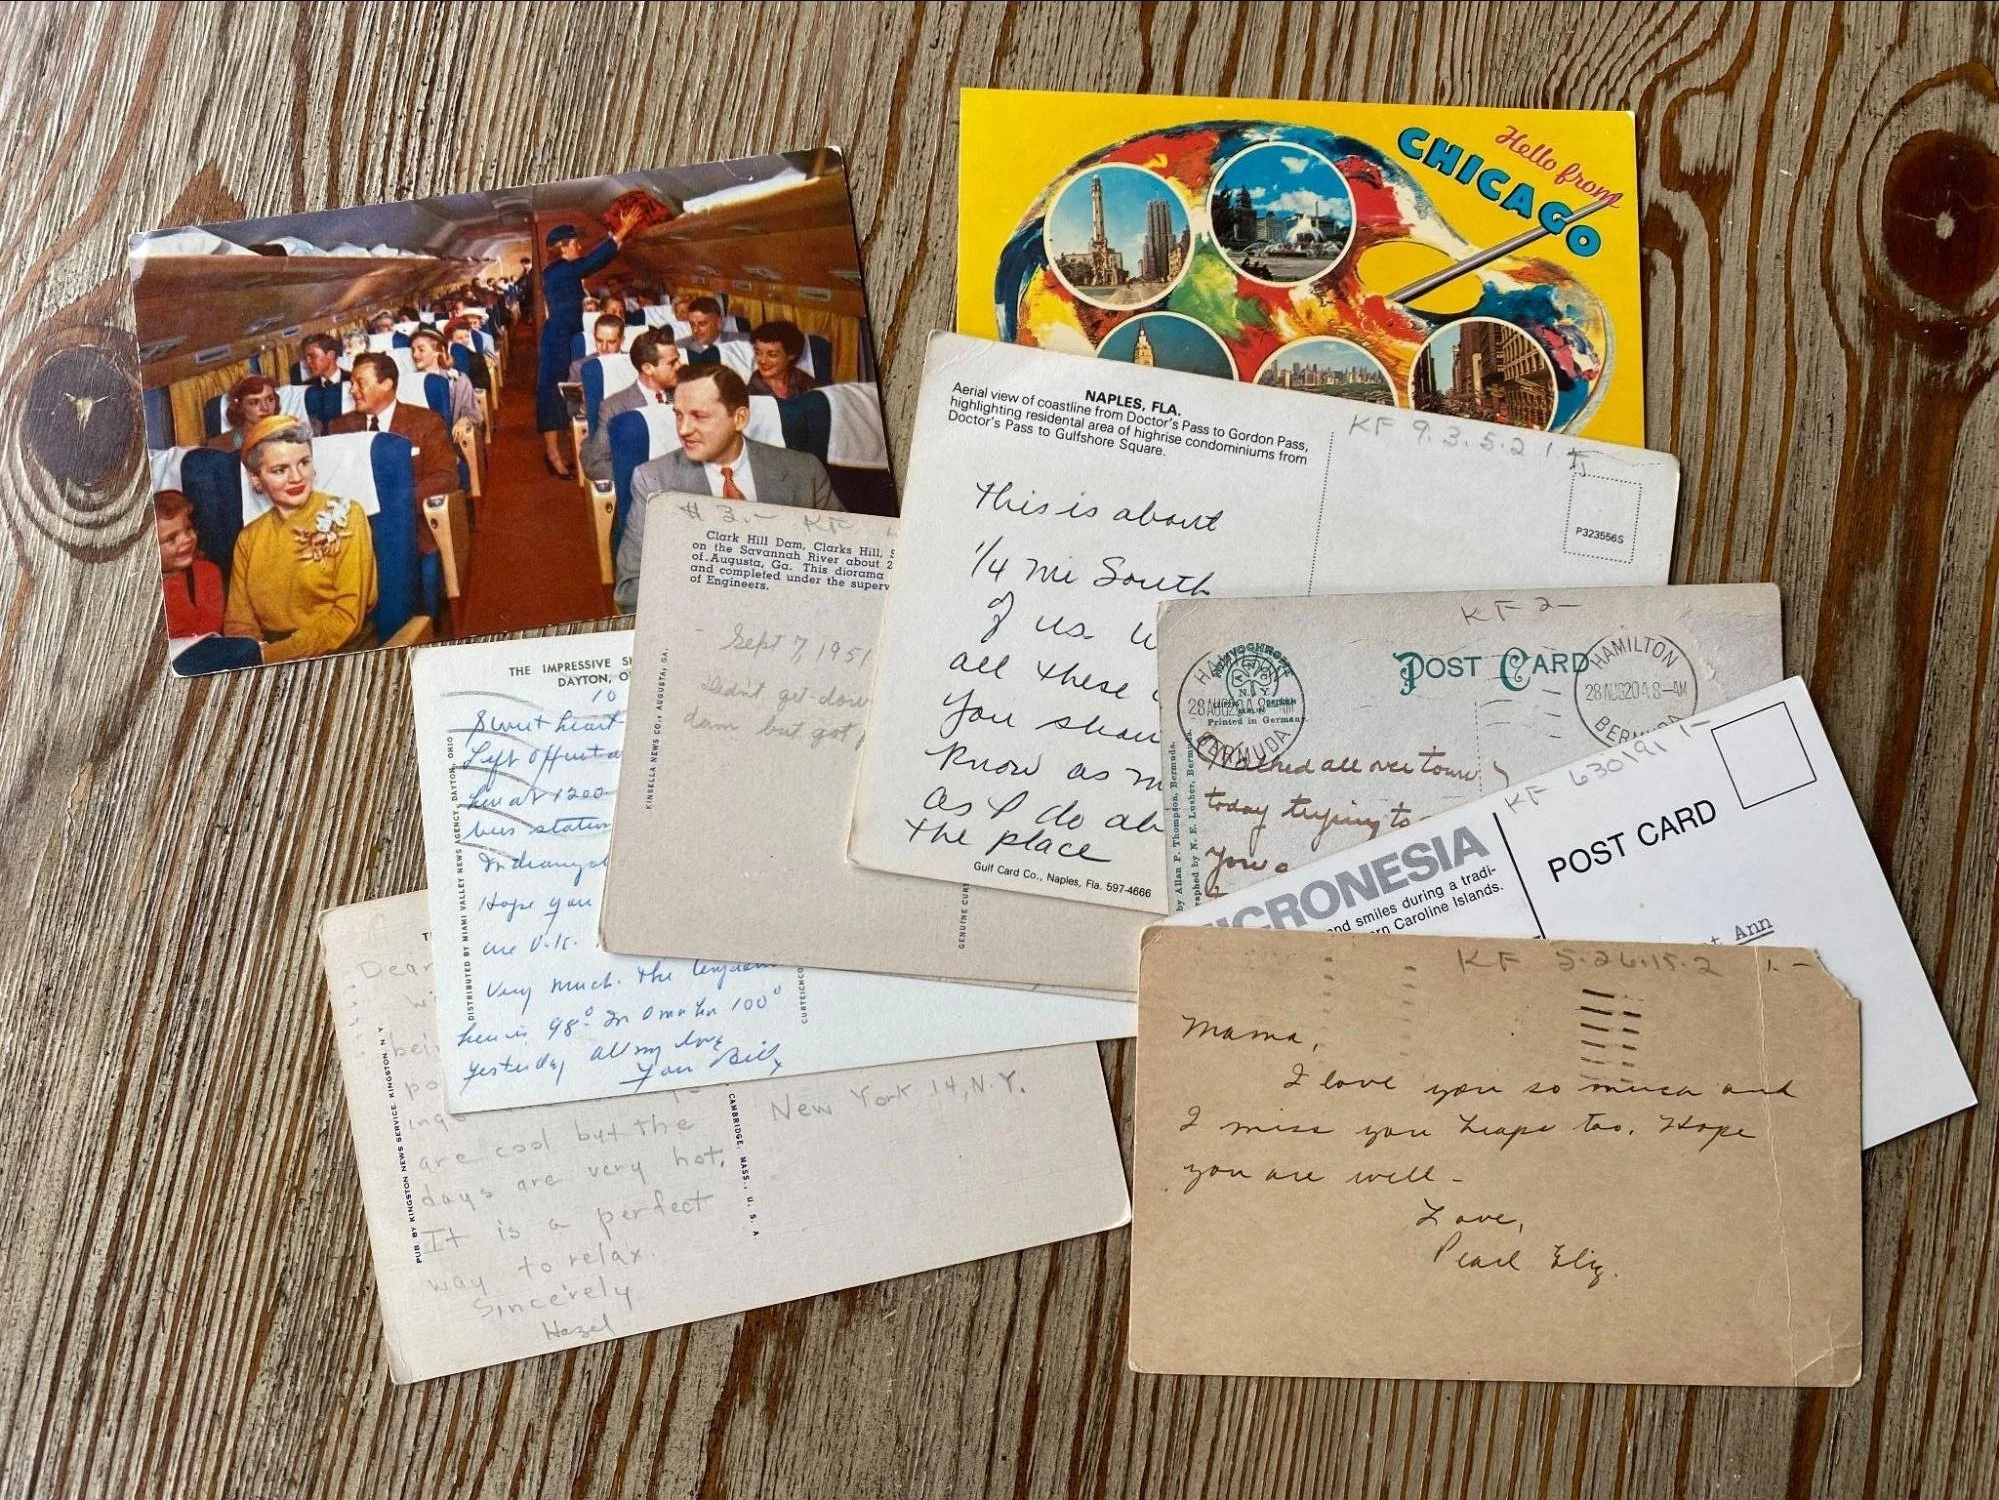 Hello from
CHICAGO
NAPLES, FLA.
Aerial view of coastline from Doctor's Pass to Gordon Pass,
highlighting residental area of highrise condominiums from
Doctor's Pass to Gulfshore Square.
KF 9.3.5.2 1
P323556S
This is about
1/4 mi South
of us.
all these
You shou
Know as m
as I do ab
the place
Gulf Card Co., Naples, Fla. 597-4666
$ 3.- KF
Clark Hill Dam, Clarks Hill, S
on the Savannah River about 2
of Augusta, Ga. This diorama
and completed under the superv
of Engineers.
Sept 7, 1951
Didn't get down
dam but got
KINSELLA NEWS CO., AUGUSTA, GA.
GENUINE CUR
KF 2-
POST CARD
HAMILTON
28 AUG 20 A 8-AM
BERMUDA
HAMILTON
28 AUG 20 A 8-AM
BERMUDA
N.Y.
BERLIN
Printed in Germany.
by Allan P. Thompson, Bermuda.
graphed by N. E. Lusher, Bermuda.
Walked all over town
today trying to
You a
THE IMPRESSIVE S
DAYTON, O
10
Sweetheart
Left Offutt a
her at 1200
bus station
Indianapol
Hope you
are O.K.
Very much. The temp
here is 98° In Omaha 100°
yesterday All my love
Your Bill
DISTRIBUTED BY MIAMI VALLEY NEWS AGENCY, DAYTON, OHIO
CURTEICHCO
KF 630191 1-
MICRONESIA
nd smiles during a tradi-
rn Caroline Islands.
POST CARD
t. Ann
Dear
Wi
bei
po
ing
are cool but the
days are very hot.
It is a perfect
way to relax.
Sincerely
Hazel
PUB. BY KINGSTON NEWS SERVICE, KINGSTON, N. Y.
CAMBRIDGE, MASS., U. S. A
New York 14, N.Y.
KF 5.26.15.2 1.-
Mama,
I love you so much and
I miss you heaps too. Hope
you are well -
Love,
Pearl Eliz.